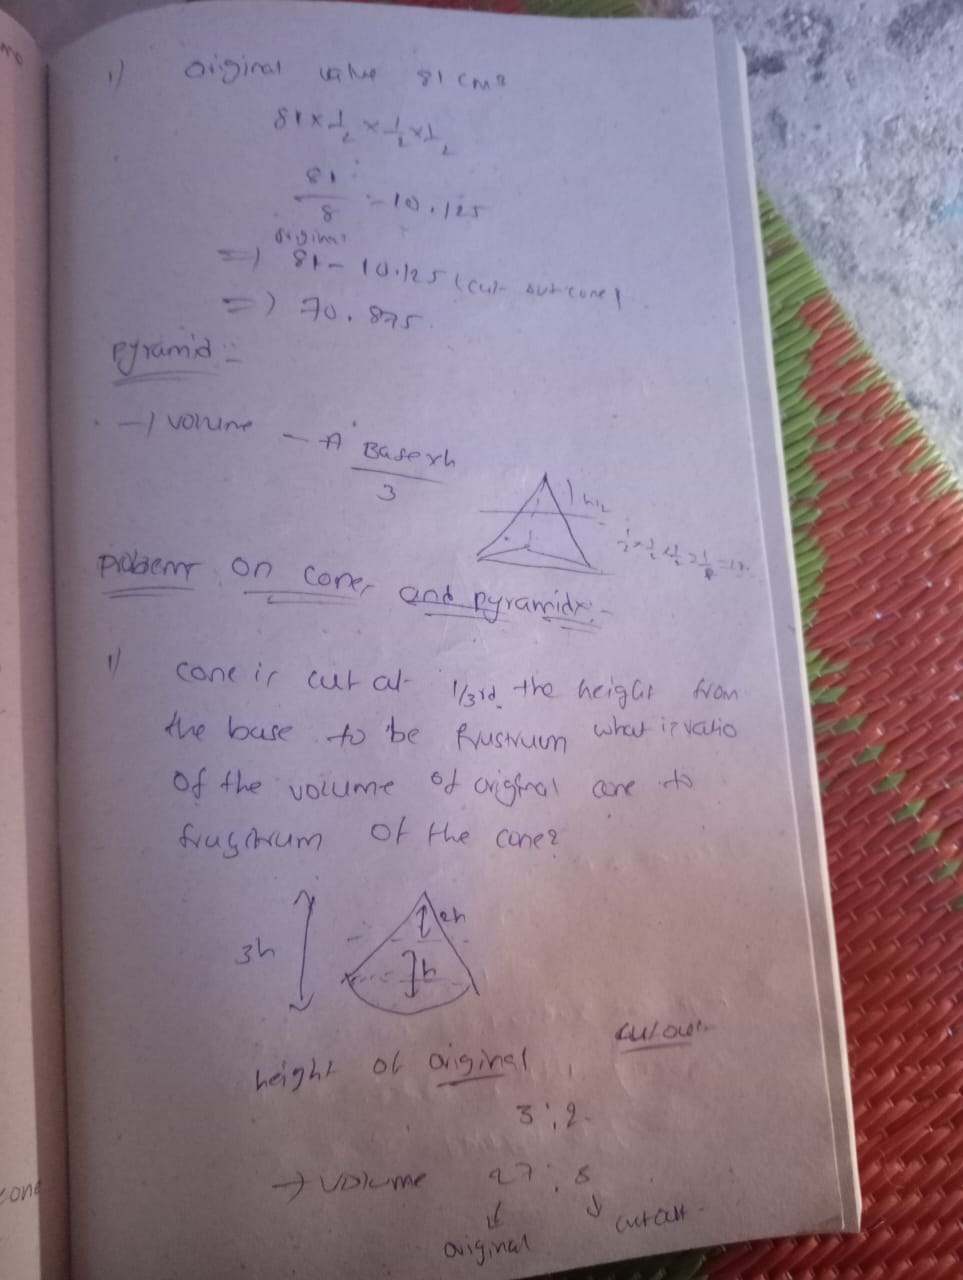 1) original value 81 cm3
81 × 1/2 × 1/2 × 1/2
81/8 = 10.125
original
=) 81 - 10.125 (cut out cone)
=) 70.875
pyramid :-
→ volume - A Base × h
3
h/2
1/2 × 1/2 × 1/2 = 1/8
problems on cones and pyramids:-
1) cone is cut at 1/3rd the height from
the base to be frustrum what is ratio
of the volume of original cone to
frugstrum of the cone?
2h
3h
h
height of original : cutout
3 : 2
→ volume 27 : 8
original cutout
cone